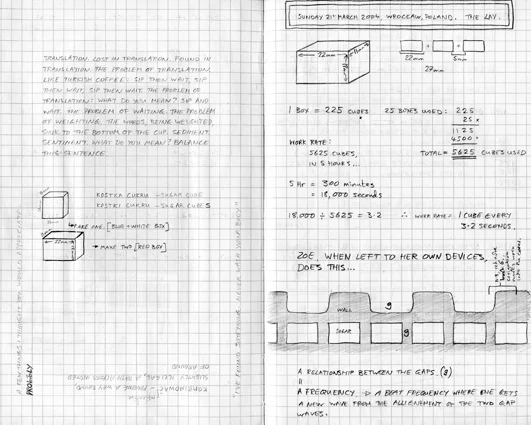 TRANSLATION. LOST IN TRANSLATION. FOUND IN
TRANSLATION. THE PROBLEM OF TRANSLATION.
LIKE TURKISH COFFEE: SIP THEN WAIT, SIP
THEN WAIT, SIP THEN WAIT. THE PROBLEM OF
TRANSLATION: WHAT DO YOU MEAN? SIP AND
WAIT. THE PROBLEM OF WAITING. THE PROBLEM
OF WEIGHTING. THE WORDS, BEING WEIGHTED,
SINK TO THE BOTTOM OF THE CUP. SEDIMENT.
SENTIMENT. WHAT DO YOU MEAN? BALANCE
THIS SENTENCE.
KOSTKA CUKRU - SUGAR CUBE
KOSTKI CUKRU - SUGAR CUBES
TAKE ONE. [BLUE + WHITE BOX]
22mm
→ MAKE TWO [RED BOX]
A FEW THINGS I THOUGHT YOU WOULD APPRECIATE
SUNDAY 21ST MARCH 2004, WROCŁAW, POLAND. THE LAY.
22mm
+ + +
22mm 5mm
27mm
1 BOX = 225 CUBES 25 BOXES USED: 225
25 x
1125
4500
WORK RATE:
5625 CUBES, TOTAL = 5625 CUBES USED
IN 5 HOURS...
5 Hr = 300 minutes
= 18,000 seconds
18,000 ÷ 5625 = 3.2 ∴ WORK RATE: 1 CUBE EVERY
3.2 SECONDS.
ZOE, WHEN LEFT TO HER OWN DEVICES,
DOES THIS...
WALL g
SUGAR g
A RELATIONSHIP BETWEEN THE GAPS. (g)
=
A FREQUENCY. → A BEAT FREQUENCY WHERE ONE GETS
A NEW WAVE FROM THE ALLIGNEMENT OF THE TWO GAP
WAVES.